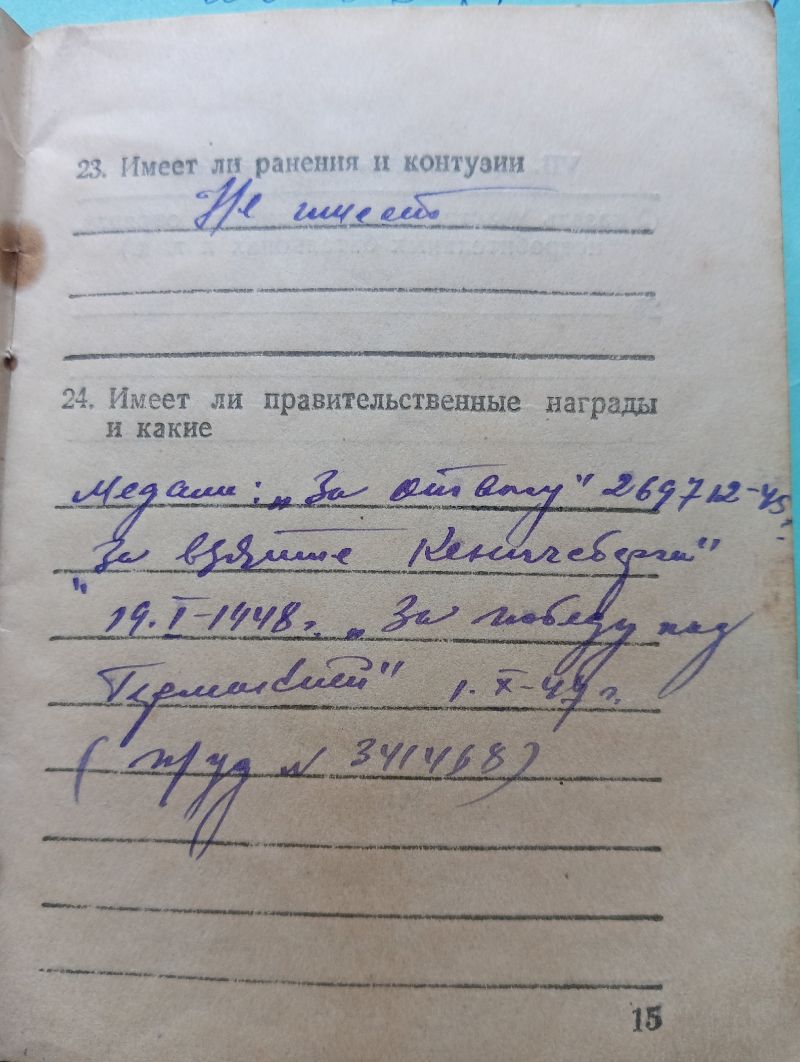 23. Имеет ли ранения и контузии
Не имеет
24. Имеет ли правительственные награды
и какие
Медали: „За отвагу" 269712-45г.
"За взятие Кенигсберга"
19.I-1948г. „За победу над
Германией" 1.X-47г.
(труд N 341468)
15